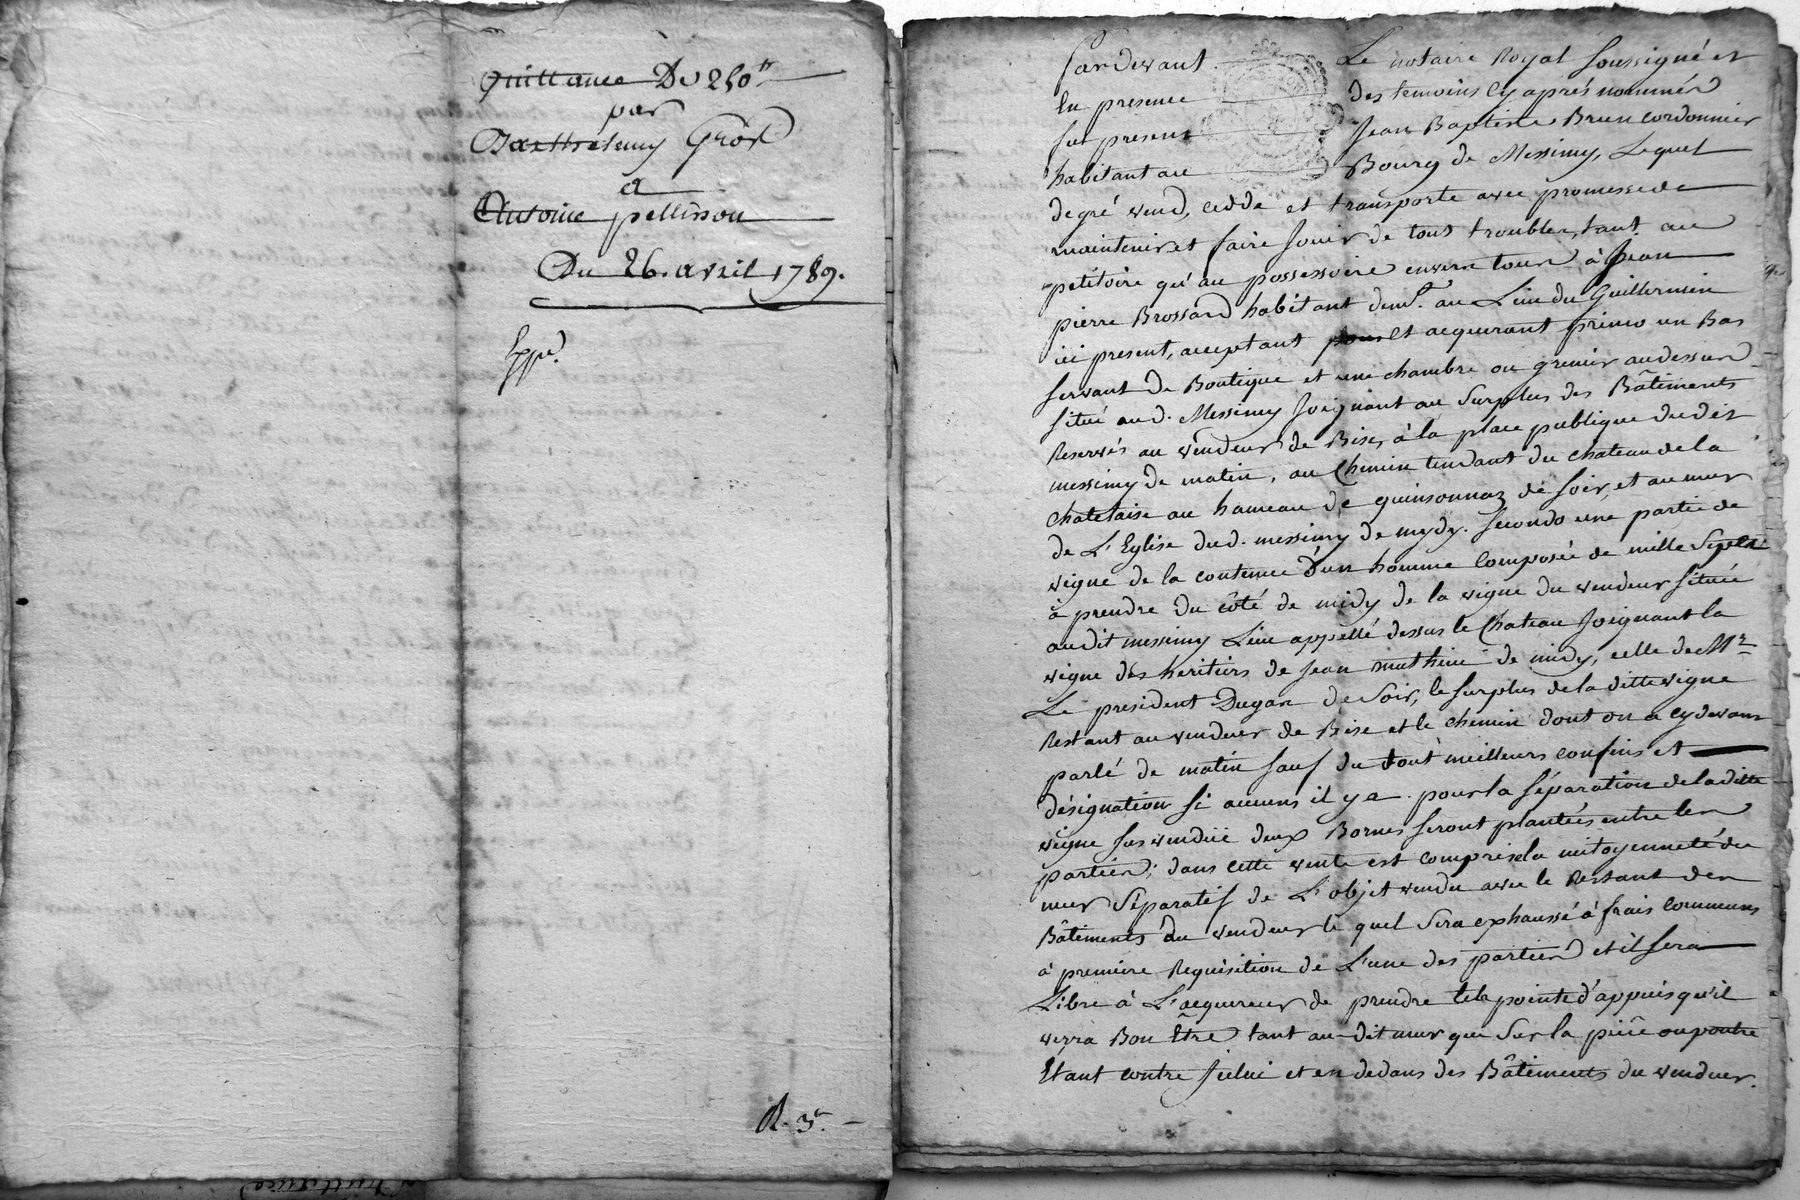 Quittance De 250ᵗᵗ
par
Barthelemy Gros
a
Antoine pellisson
Du 26. avril 1789.
Exp.e
R. 3.
Pardevant Le notaire Royal soussigné et
En presence des temoins cy aprés nommés
fut present Jean Baptiste Brun cordonnier
habitant au Bourg de Messimy, Lequel
de gré vend, cedde et transporte avec promesse de
maintenir et faire Jouir de tout troubles, tant au
petitoire qu'au possessoire envers tous à Jean
pierre Brossard habitant dem.t au Lieu du Guillermin
ici present, acceptant et acquerant primo un Bas
servant de Boutique et une chambre ou grenier audessus
situé aud. Messimy Joignant au Surplus des Bâtiments
Reservés au vendeur de Bise, à la place publique dudit
messimy de matin, au Chemin tendant du château de la
chatelaise au hameau de quinsonnaz de soir, et au mur
de L'Eglise dud. messimy de mydy. Secondo une partie de
vigne de la contenue d'un homme Composée de mille Seps
à prendre du côté de midy de la vigne du vendeur située
audit messimy Lieu appellé dessus le Chateau Joignant la
vigne des heritiers de Jean mathieu de midy, celle de Mr
Le president Dugas de Soir, le surplus de la ditte vigne
Restant au vendeur de Bise et le chemin dont on a cy devant
parlé de matin sauf du tout meilleurs confins et
désignation si aucuns il y a. pour la séparation de la ditte
vigne sus vendüe deux Bornes seront plantées entre les
parties; dans cette vente est comprise la mitoyenneté du
mur Séparatif de L'objet vendu avec le Restant des
Bâtiments du vendeur le quel Sera exhaussé à frais communs
à premiere Requisition de L'une des parties et il sera
Libre à L'acquereur de prendre tels points d'appuis qu'il
verra Bon Être tant au dit mur que Sur la piéce ou poutre
Etant contre Jcelui et en dedans des Bâtiments du vendeur.